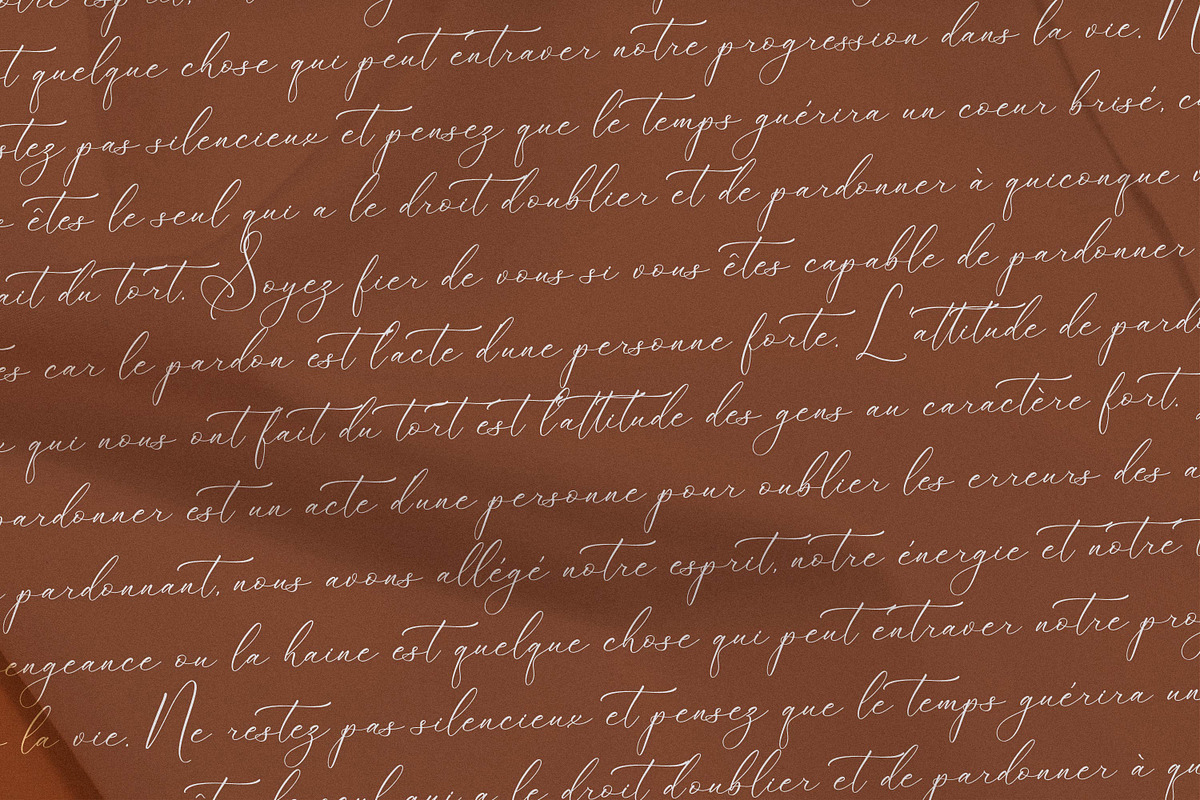 otre esprit,
t quelque chose qui peut entraver notre progression dans la vie. N
stez pas silencieux et pensez que le temps guérira un coeur brisé, c
x êtes le seul qui a le droit doublier et de pardonner à quiconque v
ait du tort. Soyez fier de vous si vous êtes capable de pardonner
es car le pardon est lacte dune personne forte. L'attitude de pard
x qui nous ont fait du tort est lattitude des gens au caractère fort.
pardonner est un acte dune personne pour oublier les erreurs des a
pardonnant, nous avons allégé notre esprit, notre énergie et notre
engeance ou la haine est quelque chose qui peut entraver notre pro
la vie. Ne restez pas silencieux et pensez que le temps guérira un
êt le seul qui a le droit doublier et de pardonner à qu